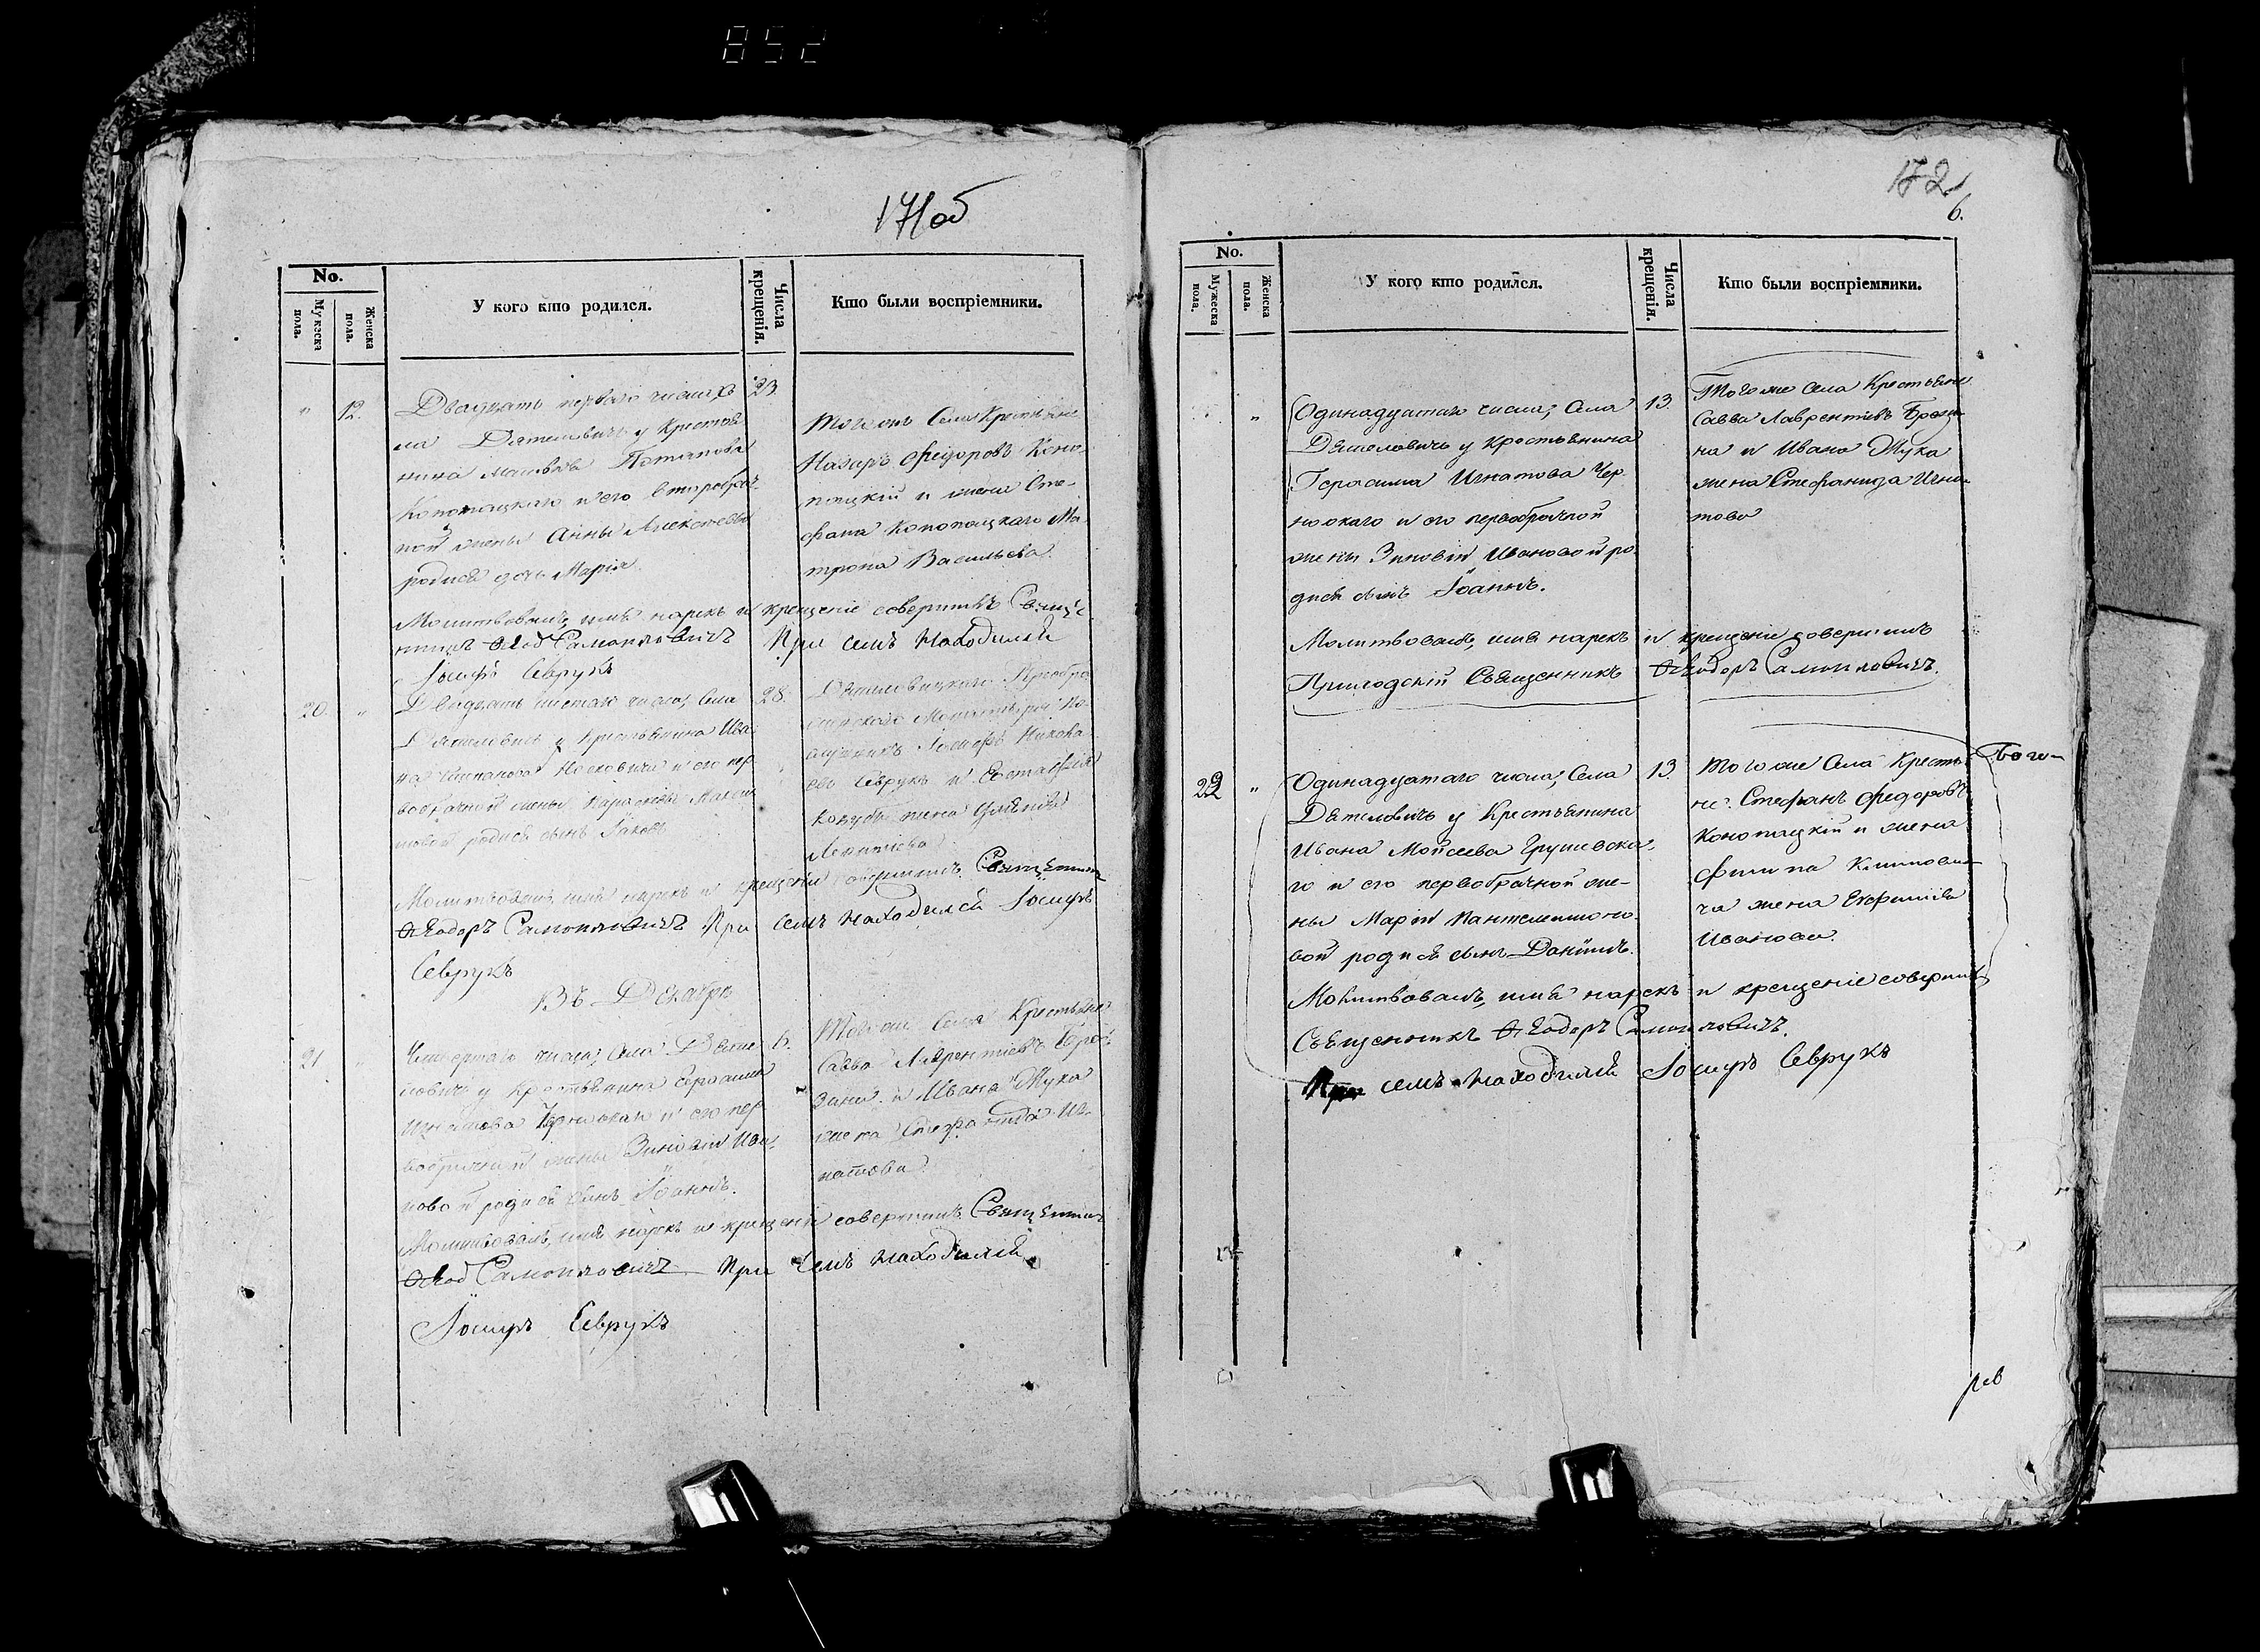 852
171об
No.
Мужеска пола.
Женска пола.
У кого кто родился.
Числа крещенія.
Кто были воспріемники.
" 12. Двадцать перваго числа; Се
ла Дятеловичь у крестья
нина Матвѣя Потапова
Конопацкаго и его второбрач
ной жены Анны Алексѣевы
родися дочь Марія.
23.
Тогоже Села Крестьяне
Назаръ Федоровъ Коно-
пацкій и жена Сте-
фана Конопацкаго Ма-
трона Васильева.
Молитвовалъ, имя нарекъ и крещеніе совершилъ Свяще
нникъ Ѳеод Самойловичъ При семъ находился
Іосифъ Севрукъ
20. " Двадцать шестаго числа; Села
Дятеловичь у крестьянина Ива
на Носковича и его пер
вобрачной жены Параскевы
родися сынъ Іаковъ
28.
Дятеловицкаго Преобра
женскаго Монастыря По
слушникъ Іосифъ
Севрукъ и
жена
Молитвовалъ, имя нарекъ и крещеніе совершилъ Священник
Ѳеодоръ Самойловичъ При семъ находился Іосифъ
Севрукъ
Въ Декабрѣ
21. " Четвертаго числа; Села Дяте
ловичь у крестьянина Герасима
Игнатова Чернюкаго и его пер
вобрачной жены Зиновіи Ива
новой родися сынъ Іоаннъ.
6.
Тогоже Села Крестьяне
Савва Лаврентіевъ
и Ивана Жука
жена Стефанида Иг-
натова
Молитвовалъ, имя нарекъ и крещеніе совершилъ Священник
Ѳеод Самойловичъ При семъ находился
Іосифъ Севрукъ
172
6.
No.
Мужеска пола.
Женска пола.
У кого кто родился.
Числа крещенія.
Кто были воспріемники.
" Одинадцатаго числа; Села
Дятеловичь у крестьянина
Герасима Игнатова Чер
нюкаго и его первобрачной
жены Зиновіи Ивановой ро
дися сынъ Іоаннъ.
13.
Тогоже Села Крестьяне
Савва Лаврентіевъ
на и Ивана Жука
жена Стефанида Игна
това
Молитвовалъ, имя нарекъ и крещеніе совершилъ
Приходскій Священникъ Ѳеодоръ Самойловичъ.
22 " Одинадцатаго числа; Села
Дятеловичь у Крестьянина
Ивана Мойсеева Грушевска
го и его первобрачной же-
ны Маріи Пантелеимоно
вой родися сынъ Даніилъ.
13.
Тогоже Села Крестья
не Стефанъ Федоровъ
Конопацкій и жена
Филипа Климови
ча жена Евфимія
Иванова.
Молитвовалъ, имя нарекъ и крещеніе совершилъ
Священникъ Ѳеодоръ Самойловичъ.
При семъ находился Іосифъ Севрукъ